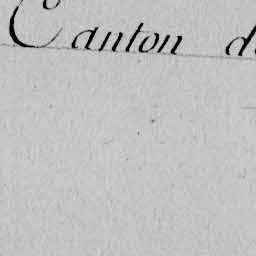 Canton d